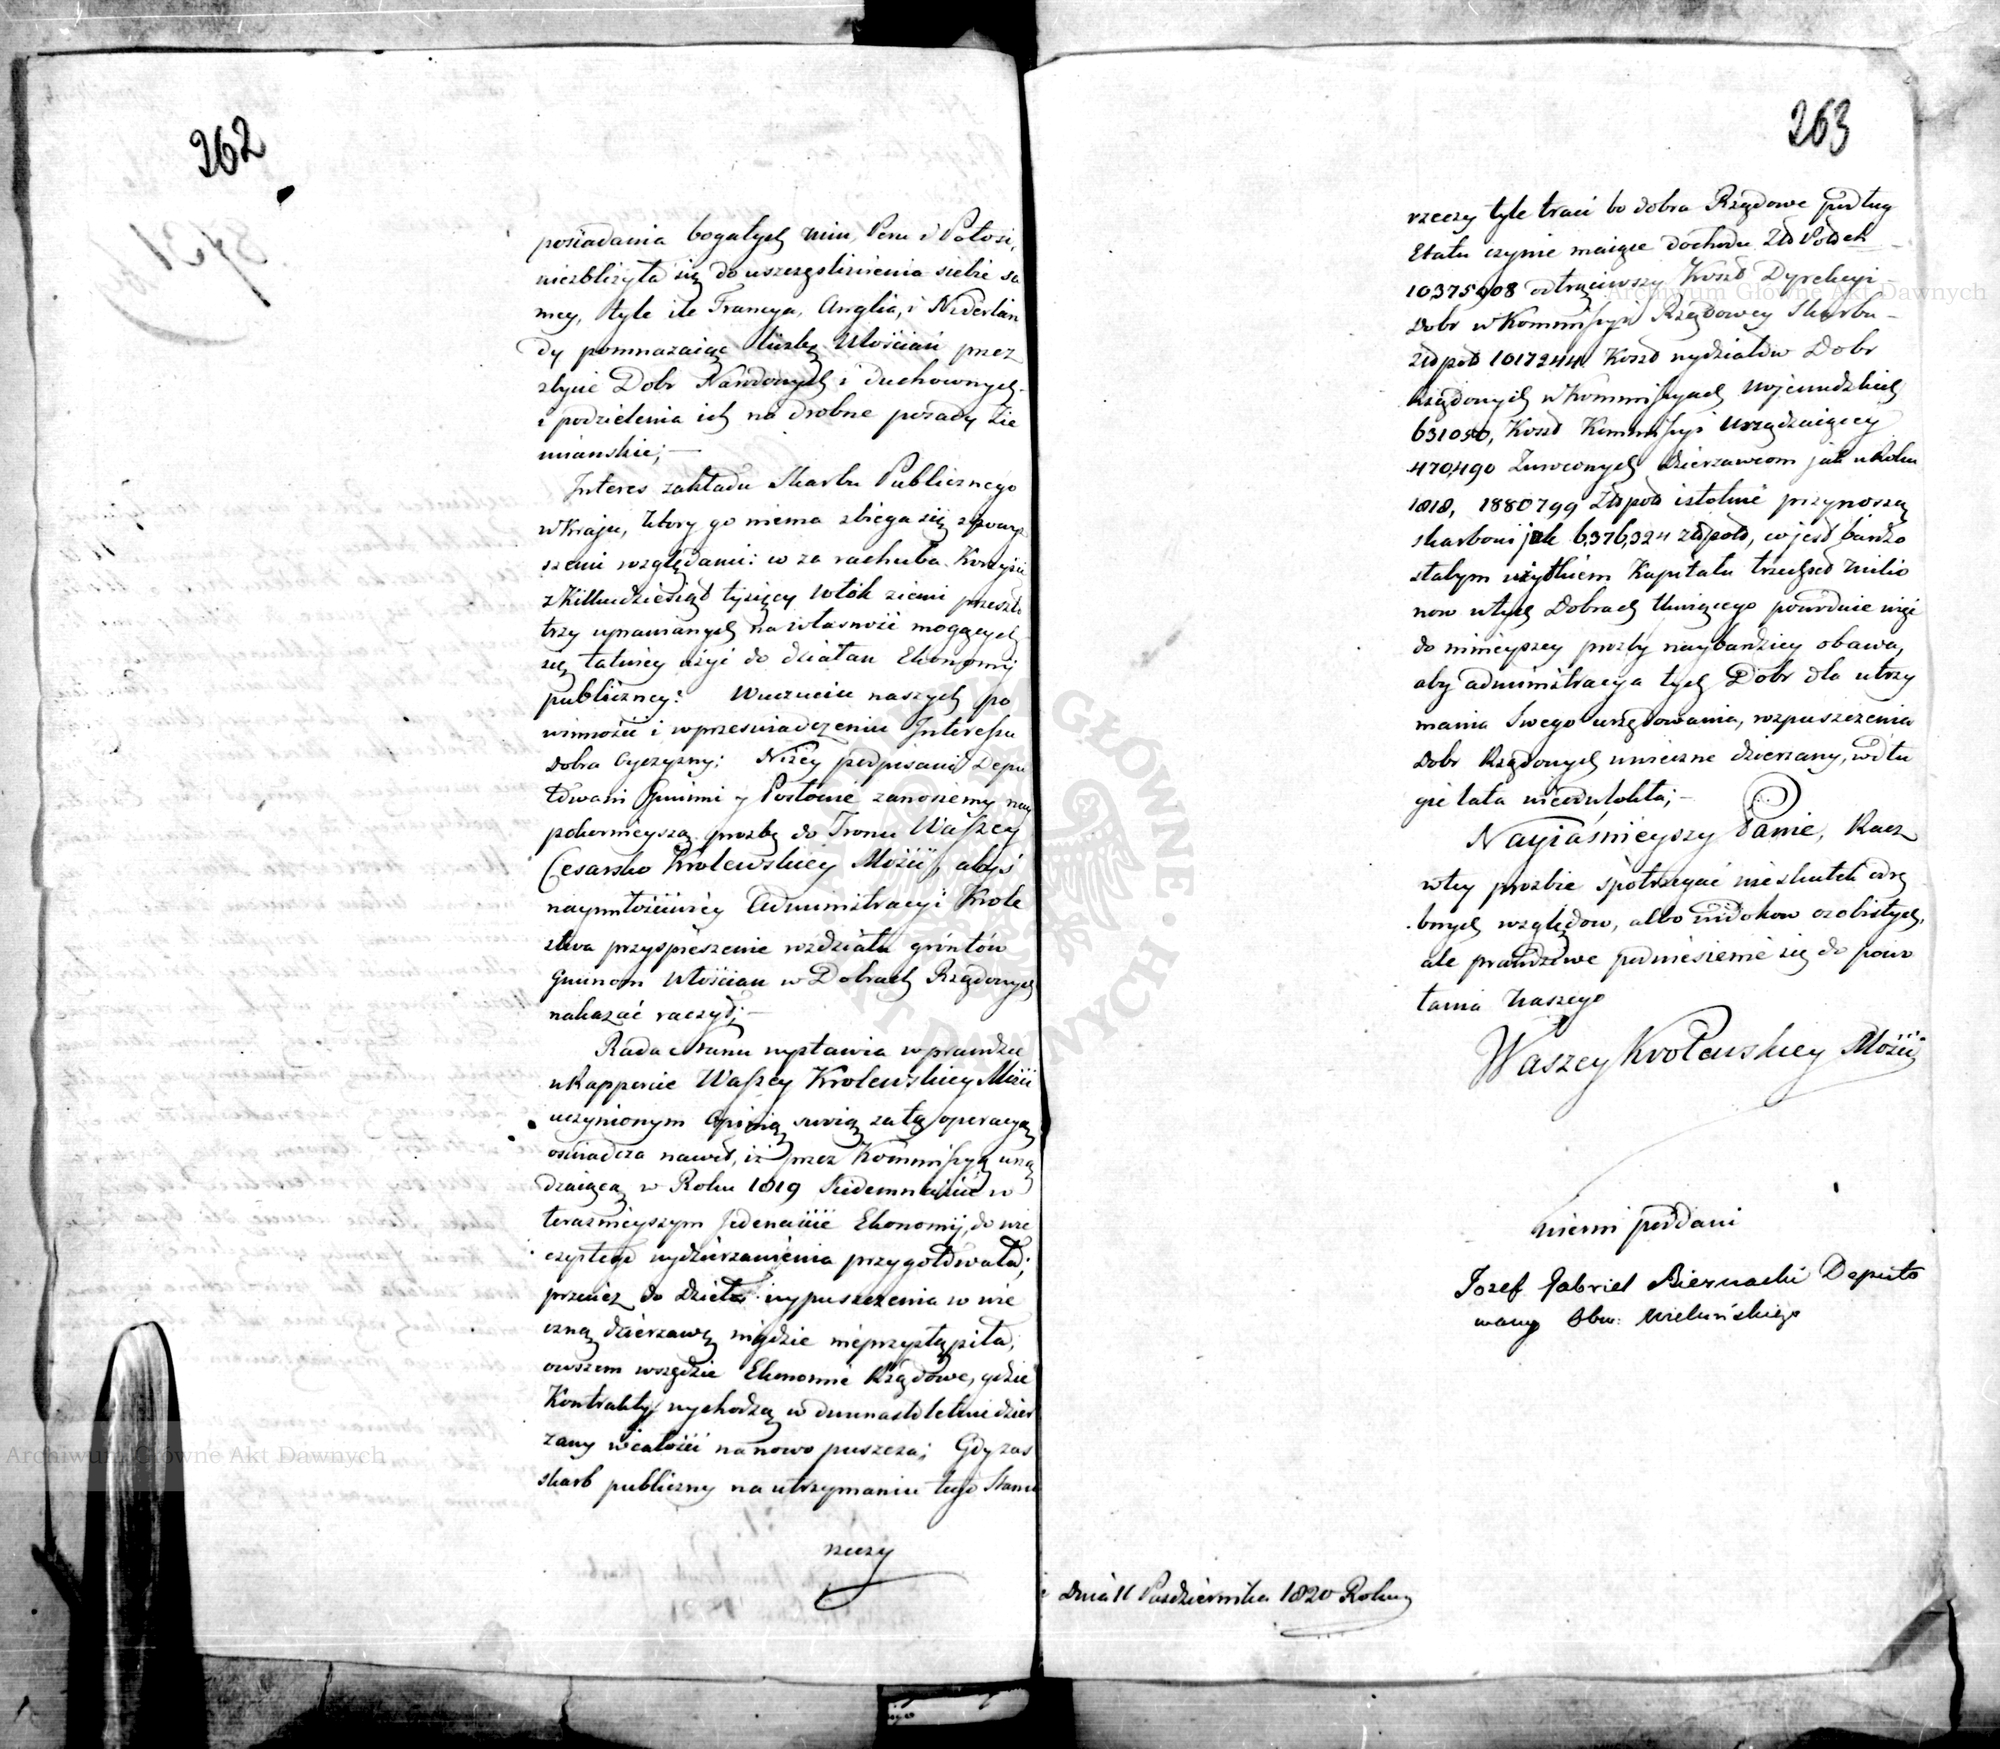 262
posiadania bogatych min, Peru i Potosi,
niezbliżyła się do uszczęśliwienia siebie sa
mey, tyle ile Francya, Anglia, i Niderlan
dy pomnażaiąc liczbę Włościan przez
zbycie Dobr Narodowych i duchownych
i podzielenia ich na drobne posady Zie
miańskie; —
Interes zakładu Skarbu Publicznego
w Kraju, który go niema zbiega się z powyż
szemi względami: w za rachuba Korzyści
z Kilkudziesiąt tysięcy włók ziemi przeszło
trzy uprawianych na własność mogących
się łatwiey użyć do działań Ekonomij
publiczney: W uczuciu naszych po
winności i w przeświadczeniu Interessu
dobra Oyczyzny; Niżey podpisani Depu
towani Gminni y Posłowie zanosiemy nay
pokornieyszą prozbę do Tronu Waszey
Cesarsko Krolewskiey Mości, abyś
naymłościwiey Administracyi Krole
stwa przyspieszenie rozdziału gróntów
Gminom Włościan w Dobrach Rządowych
nakazać raczył; —
Rada Stanu wystawia wprawdzie
w Rapporcie Waszey Krolewskiey Mości
uczynionym Opinią swoią za tą operacyą
oświadcza nawet, iż przez Kommissyą urzą
dzaiącą w Roku 1819 Siedemnaście w
teraznieyszym Jedenaście Ekonomij, do wie
czystego wydzierzawienia przygotowała;
przecież do Dzieła wypuszczenia w wie
czną dzierzawę nigdzie nieprzystąpiła,
owszem wszędzie Ekonomie Rządowe, gdzie
Kontrakty wychodzą w dwunastoletnie dzier
zawy w całości na nowo puszcza; Gdy zas
skarb publiczny na utrzymaniu tego Stanu
rzeczy
263
rzeczy tyle traci bo dobra Rządowe podług
Etatu czynie maiące dochodu Złł Polsch
10,375,908 odtrąciwszy Koszt Dyrekcyi
Dobr w Kommissyi Rządowey Skarbu
Złł pol 1017244. Koszt wydziałów Dobr
Rządowych w Kommissyach Wojewudzkich
631050, Koszt Kommissyi Urządzaiącey
470,490 Zwroconych dzierzawcom jak w Roku
1818, 1880799 Złł pol istotnie przynoszą
skarbowi jak 6,376,324 złł pols, co jest bardzo
stałym użytkiem Kapitału trzechset milio
now w tych Dobrach tkwiącego powoduie więc
do ninieyszey prozby naybardziey obawa,
aby administracya tych Dobr dla utrzy
mania swego urzędowania, rozpuszczenia
Dobr Rządowych w wieczne dzierzawy, w dłu
gie lata nieodwlokła; —
Nayiaśnieyszy Panie, Racz
w tey prozbie spostrzegać nie skutek odrę
bnych względow, albo widokow ozobistych,
ale prawdziwe podniesienie się do powo
łania Naszego
Waszey Krolewskiey Mości
wierni poddani
Jozef Gabriel Biernacki Deputo
wany Obw: Wieluńskiego
Dnia 11 Pazdziernika 1820 Roku
Archiwum Główne Akt Dawnych
Archiwum Główne Akt Dawnych